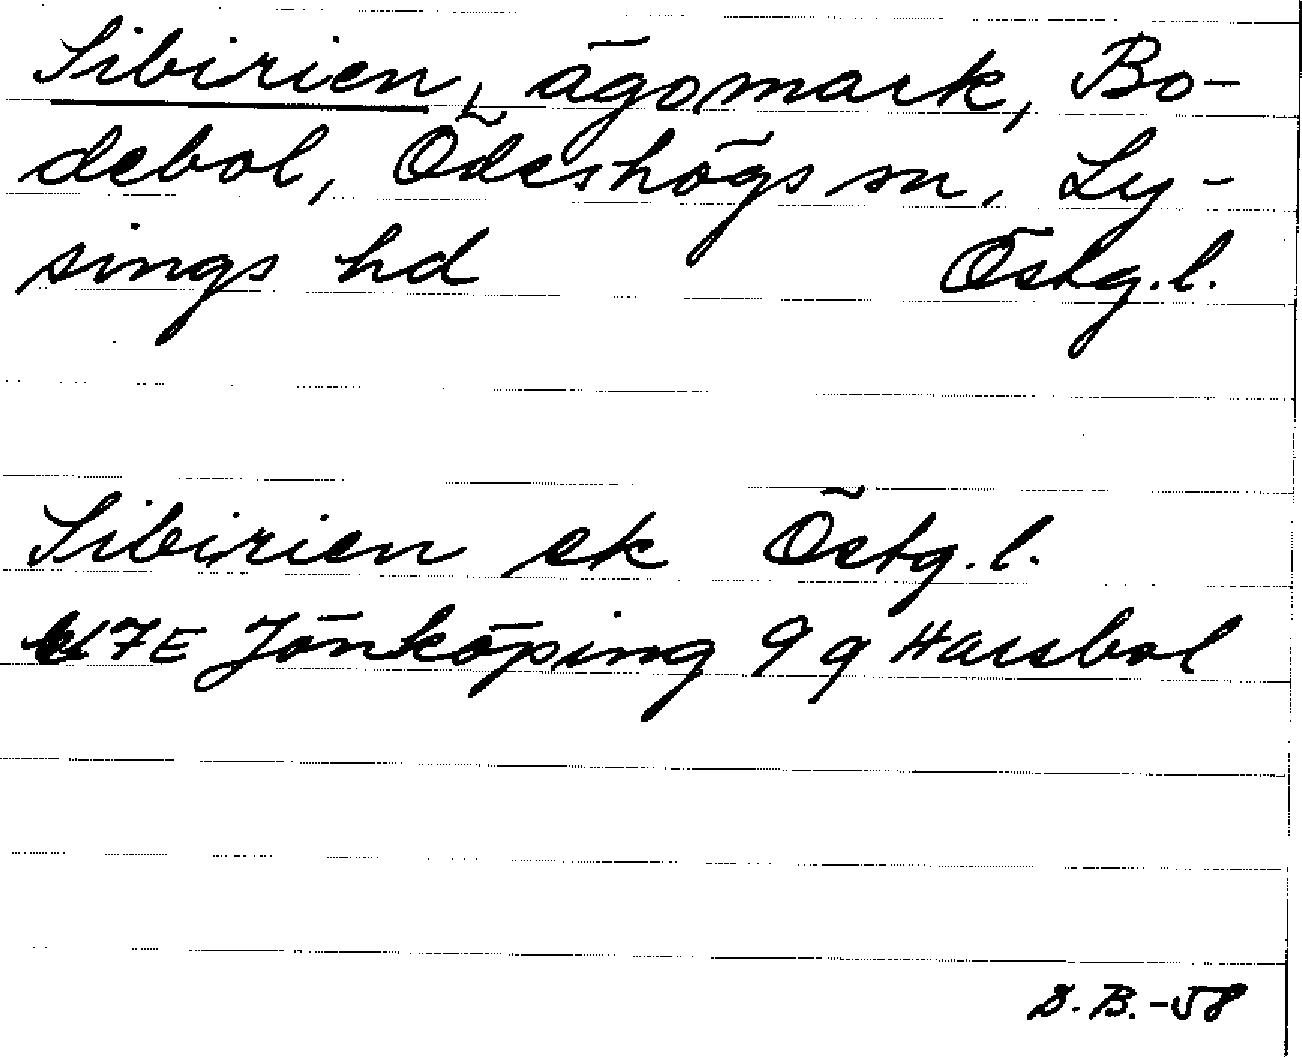 Sibirien, ägomark, Bo-
debol, Ödeshögs sn, Ly-
sings hd Östg.l.
Sibirien ek Östg.l.
7E Jönköping 9 g Harsbol
S.B.-58